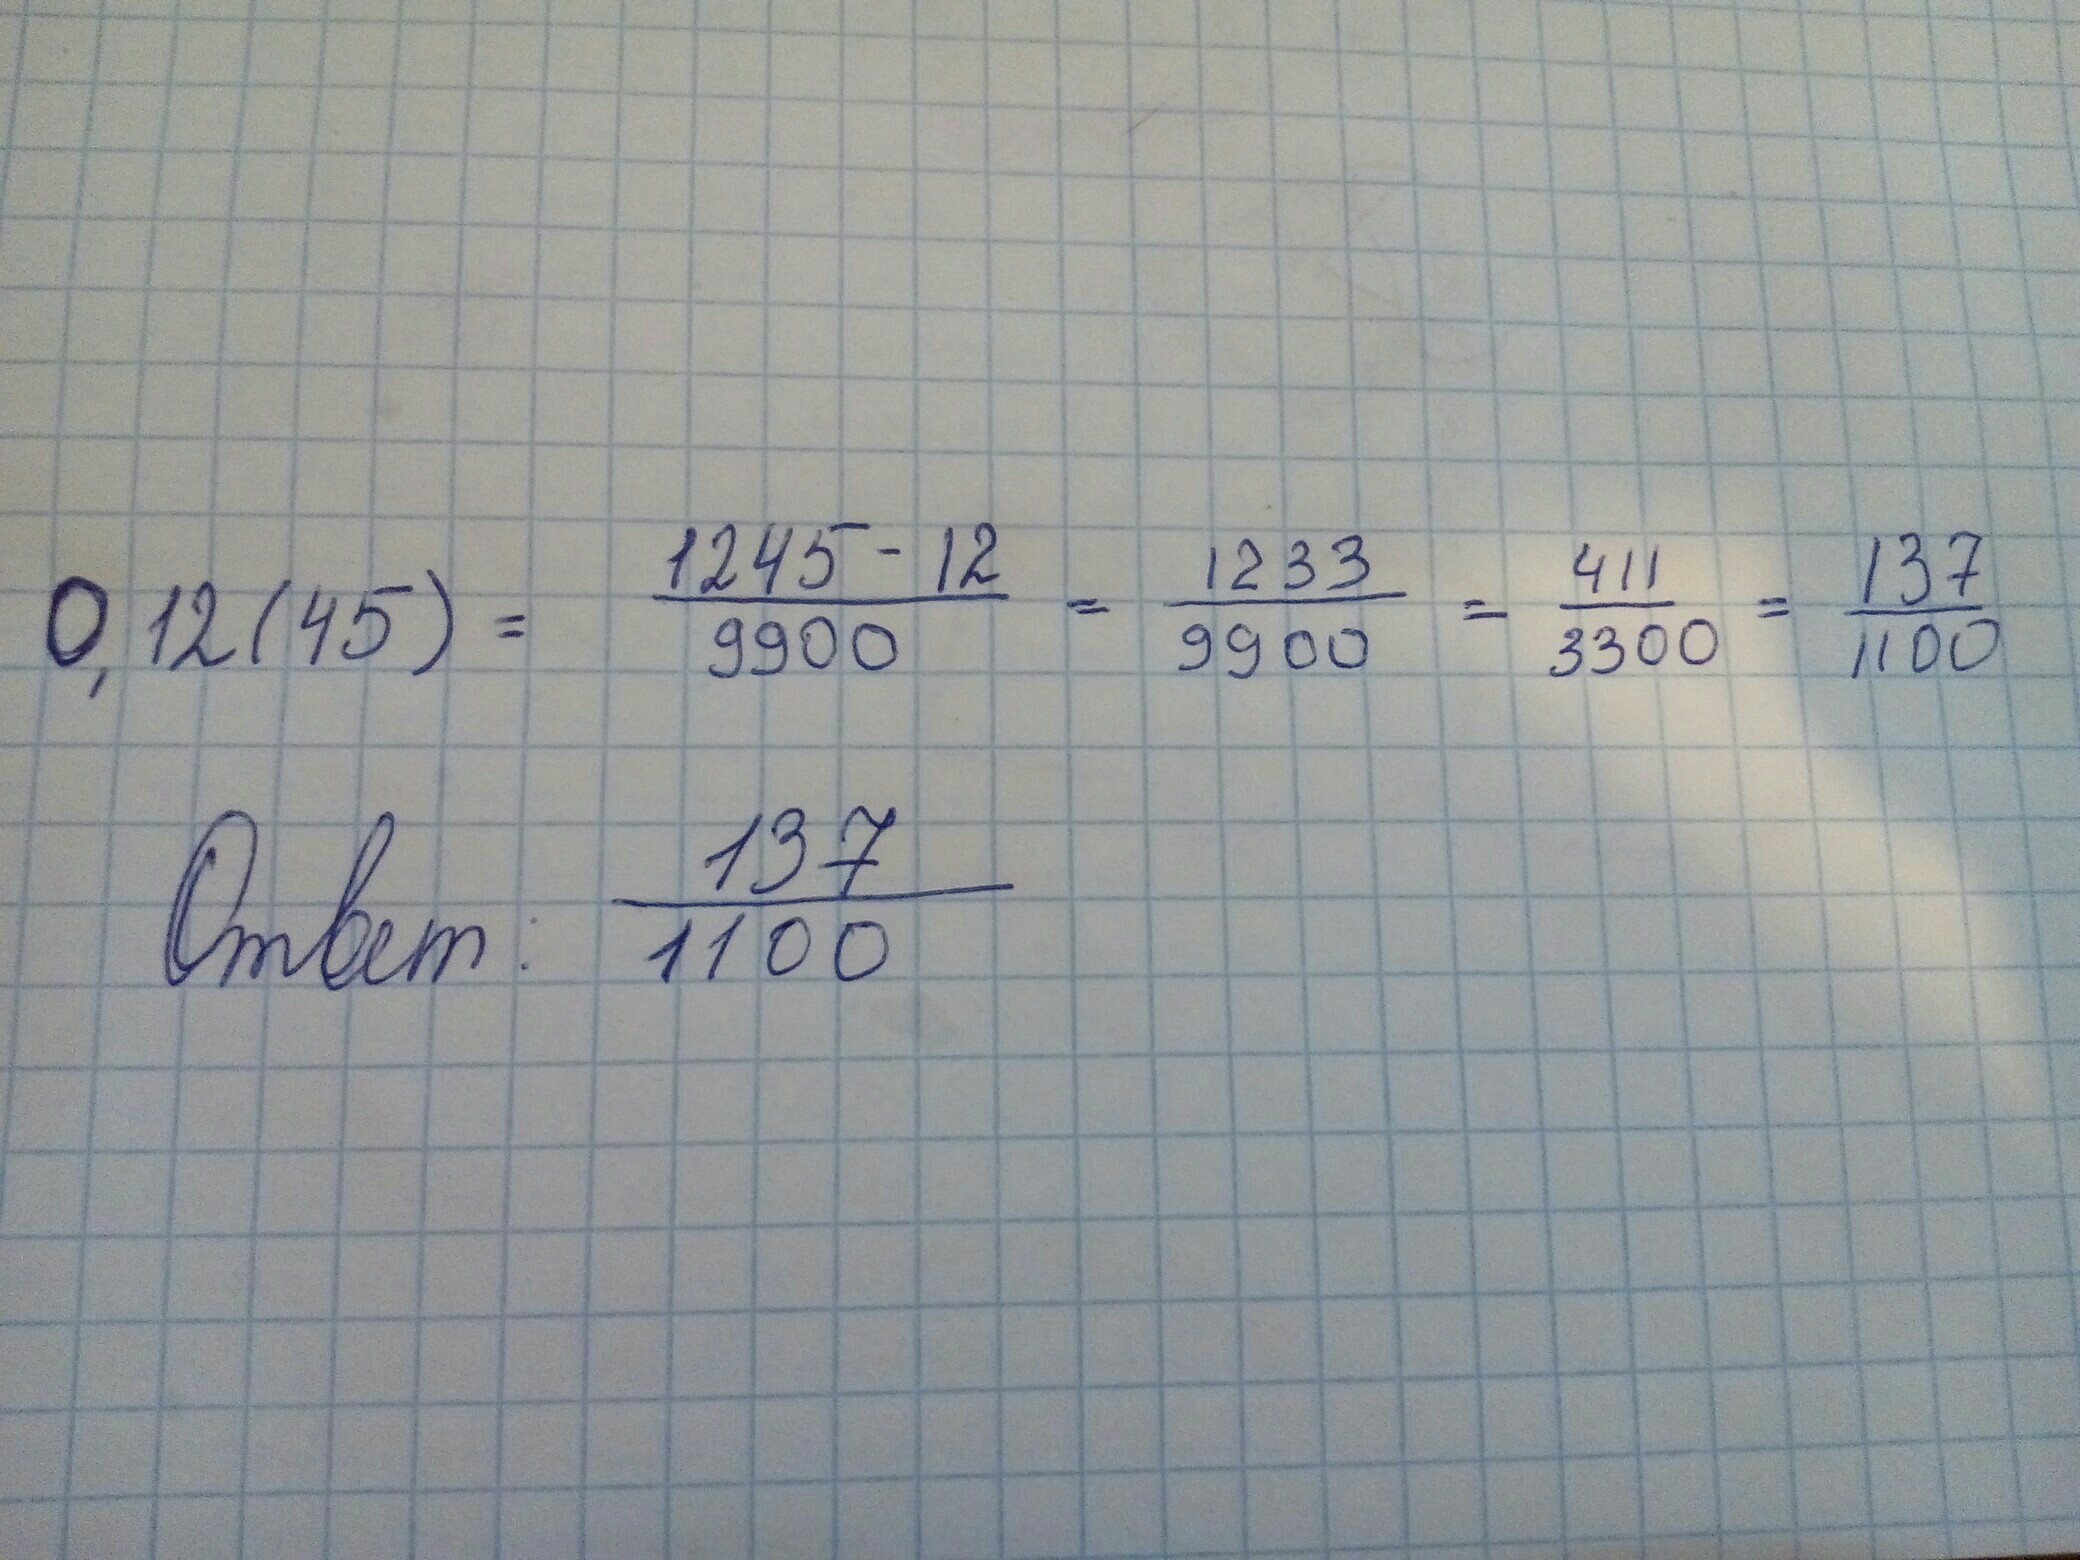 0,12(45) = 1245-12/9900 = 1233/9900 = 411/3300 = 137/1100
Ответ: 137/1100